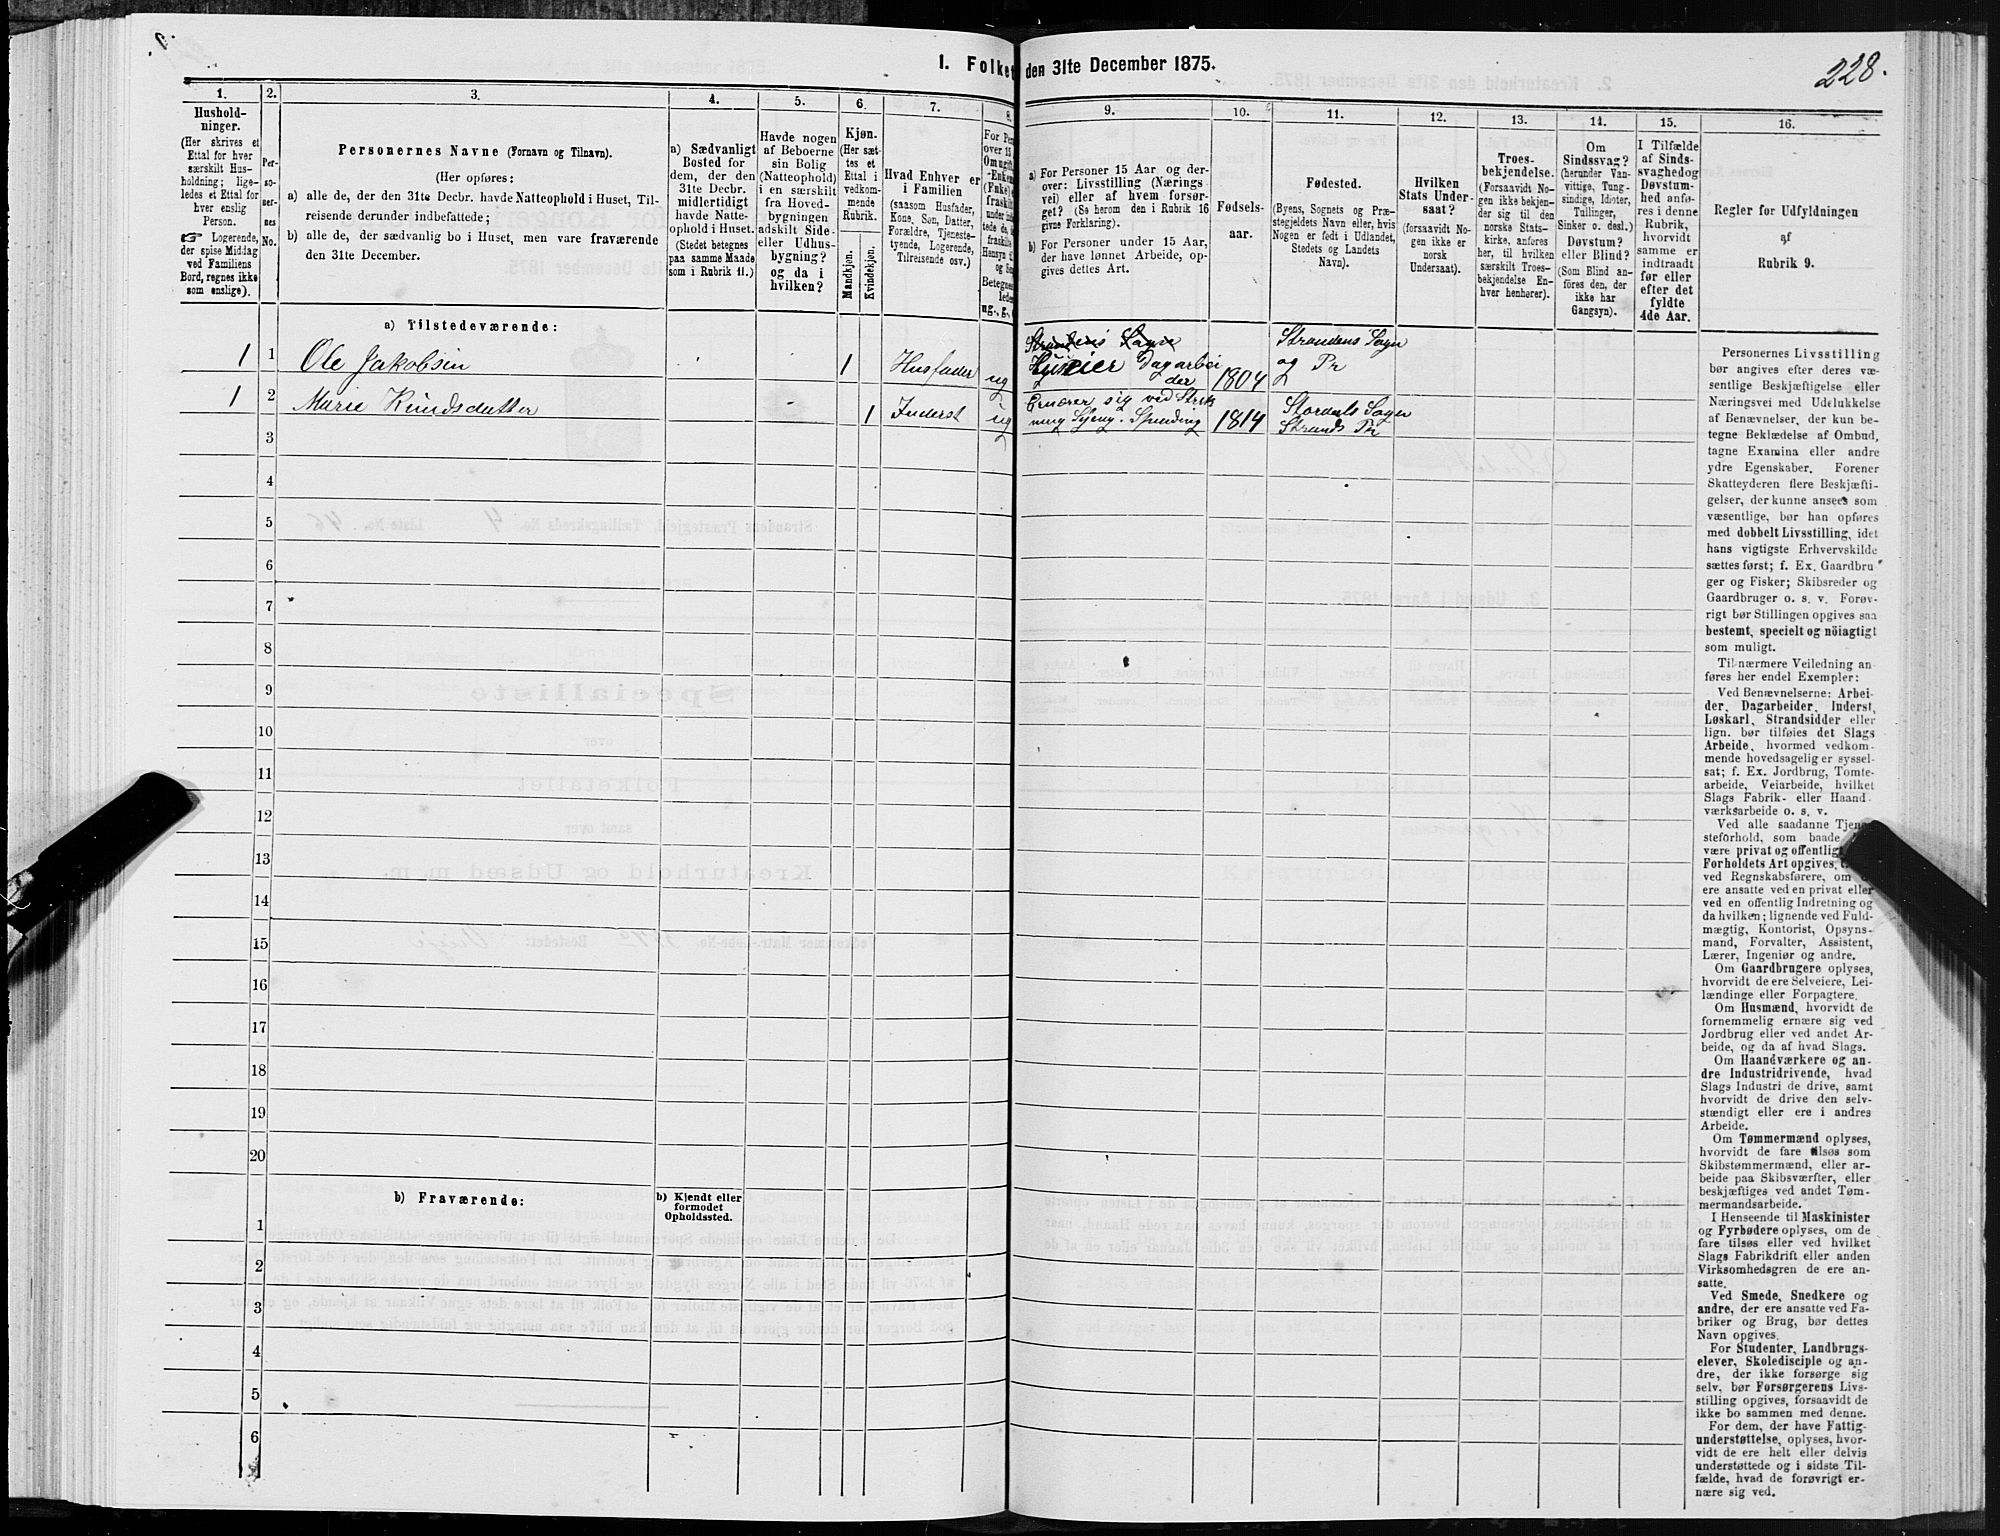 228.
1. Folket den 31te December 1875.
1.
2.
3.
4.
5.
6.
7.
8.
9.
10.
11.
12.
13.
14.
15.
16.
Hushold-
ninger.
(Her skrives et
Ettal for hver
særskilt Hus-
holdning; lige-
ledes et Ettal for
hver enslig
Person.
☞ Logerende,
der spise Middag
ved Familiens
Bord, regnes ikke
som enslige).
Per-
so-
ner-
nes
No.
Personernes Navne (Fornavn og Tilnavn).
(Her opføres:
a) alle de, der den 31te Decbr. havde Natteophold i Huset, Til-
reisende derunder indbefattede;
b) alle de, der sædvanlig bo i Huset, men vare fraværende
den 31te December.
a) Sædvanligt
Bosted for
dem, der den
31te Decbr.
midlertidigt
havde Natte-
ophold i Huset.
(Stedet betegnes
paa samme Maade
som i Rubrik 11.)
Havde nogen
af Beboerne
sin Bolig
(Natteophold)
i en særskilt
fra Hoved-
bygningen
adskilt Side-
eller Udhus-
bygning?
og da i
hvilken?
Kjøn.
(Her sæt-
tes et
Ettal i
vedkom-
mende
Rubrik.
Mandkjøn.
Kvindekjøn.
Hvad Enhver er
i Familien
(saasom Husfader,
Kone, Søn, Datter,
Forældre, Tjeneste-
tyende, Logerende,
Tilreisende osv.)
For Per
over 15
Om ugift
Enken
(Fnke)
fraskilt
under ind
tede de,
fraskilte
Hensyn t
og Se
Betegnes
lede
ug., g.,
a) For Personer 15 Aar og der-
over: Livsstilling (Nærings
vei) eller af hvem forsør-
get? (Se herom den i Rubrik 16
givne Forklaring).
b) For Personer under 15 Aar,
der have lønnet Arbeide, op-
gives dettes Art.
Fødsels-
aar.
Fødested.
(Byens, Sognets og Præ-
stegjeldets Navn eller, hvis
Nogen er født i Udlandet,
Stedets og Landets
Navn).
Hvilken
Stats Under-
saat?
(forsaavidt No-
gen ikke er
norsk
Undersaat).
Troes-
bekjendelse.
(Forsaavidt No-
gen ikke bekjen-
der sig til den
norske Stats-
kirke, anføres
her, til hvilken
særskilt Troes-
bekjendelse En-
hver henhører).
Om
Sindssvag?
(herunder Van-
vittige, Tung-
sindige, Idioter,
Tullinger,
Sinker o. desl.)
Døvstum?
eller Blind?
(Som Blind an-
føres den, der
ikke har
Gangsyn).
I Tilfælde
af Sinds-
svaghed og
Døvstum-
hed anfø-
res i denne
Rubrik,
hvorvidt
samme er
indtraadt
før eller
efter det
fyldte
4de Aar.
Regler for Udfyldningen
af
Rubrik 9.
a) Tilstedeværende:
Strandens Sogn
1 1 Ole Jakobsen 1 Husfader ug Huseier Dagarbei
der 1804 Strandens Sogn
og Pr
1 2 Marie Knudsdatter 1 Inderst ug Ernærer sig ved Strik
ning Syeng. Spinding 1814 Stordals Sogn
Strands Pr
3
4
5
6
7
8
9
10
11
12
13
14
15
16
17
18
19
20
b) Fraværende:
b) Kjendt eller
formodet
Opholdssted.
1
2
3
4
5
6
Personernes Livsstilling
bør angives efter deres væ-
sentlige Beskjæftigelse eller
Næringsvei med Udelukkelse
af Benævnelser, der kun be-
tegne Beklædelse af Ombud,
tagne Examina eller andre
ydre Egenskaber. Forener
Skatteyderen flere Beskjæfti-
gelser, der kunne ansees som
væsentlige, bør han opføres
med dobbelt Livsstilling, idet
hans vigtigste Erhvervskilde
sættes først; f. Ex. Gaardbru
ger og Fisker; Skibsreder og
Gaardbruger o. s. v. Forøv-
rigt bør Stillingen opgives saa
bestemt, specielt og nöiagtigt
som muligt.
Til nærmere Veiledning an-
føres her endel Exempler:
Ved Benævnelserne: Arbei-
der, Dagarbeider, Inderst,
Løskarl, Strandsidder eller
lign. bør tilføies det Slags
Arbeide, hvormed vedkom-
mende hovedsagelig er syssel-
sat; f. Ex. Jordbrug, Tomte-
arbeide, Veiarbeide, hvilket
Slags Fabrik- eller Haand-
værksarbeide o. s. v.
Ved alle saadanne Tjene-
steforhold, som baade
være privat og offentlig
Forholdets Art opgives,
ved Regnskabsførere, om
ere ansatte ved en privat eller
ved en offentlig Indretning og
da hvilken; lignende ved Fuld-
mægtig, Kontorist, Opsyns-
mand, Forvalter, Assistent,
Lærer, Ingeniør og andre.
Om Gaardbrugere oplyses,
hvorvidt de ere Selveiere, Lei-
lændinge eller Forpagtere.
Om Husmænd, hvorvidt de
fornemmelig ernære sig ved
Jordbrug eller ved andet Ar-
beide, og da af hvad Slags.
Om Haandværkere og an-
dre Industridrivende, hvad
Slags Industri de drive, samt
hvorvidt de drive den selv-
stændigt eller ere i andres
Arbeide.
Om Tømmermænd oplyses,
hvorvidt de fare tilsøs som
Skibstømmermænd, eller ar-
beide paa Skibsværfter, eller
beskjæftiges ved andet Tøm-
mermandsarbeide.
I Henseende til Maskinister
og Fyrbødere oplyses, om de
fare tilsøs eller ved hvilket
Slags Fabrikdrift eller anden
Virksomhedsgren de ere an-
satte.
Ved Smede, Snedkere og
andre, der ere ansatte ved Fa-
briker og Brug, bør dettes
Navn opgives.
For Studenter, Landbrugs-
elever, Skoledisciple og an-
dre, der ikke forsørge sig
selv, bør Forsørgerens Livs-
stilling opgives, forsaavidt de
ikke bo sammen med denne.
For dem, der have Fattig-
understøttelse, oplyses, hvor-
vidt de ere helt eller delvis
understøttede og i sidste Til-
fælde, hvad de forøvrigt er-
nære sig ved.